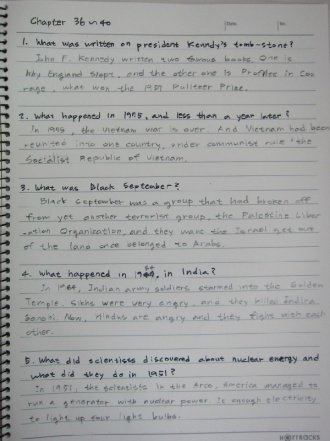 Chapter 36 ~ 40
Date No.
1. What was written on president Kenndy's tomb-stone?
John F. Kennedy written two famous books. One is
Why England Slept, and the other one is Profiles in Cou
rage, what won the 1957 Pulitzer Prize.
2. What happened in 1975, and less than a year later?
In 1975, the Vietnam war is over. And Vietnam had been
reunited into one country, under communist rule "the
Socialist Republic of Vietnam.
3. What was Black September?
Black September was a group that had broken off
from yet another terrorist group, the Palestine Liber
-ation Organization, and they want the Israel
of the land once belonged to Arabs.
4. What happened in 1984, in India?
In 1984, Indian army soldiers stormed into the Golden
Temple. Sikhs were very angry, and they killed Indira
Gandhi. Now, Hindus are angry and they fight with each
other.
5. What did scientists discovered about nuclear energy and
what did they do in 1951?
In 1951, the scientists in the Arco, America managed to
run a generator with nuclear power. It enough electricity
to light up four light bulbs.
HOTTRACKS